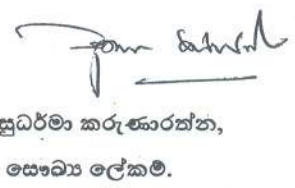 සුධර්මා කරුණාරත්න,
සෞඛ්‍ය ලේකම්.